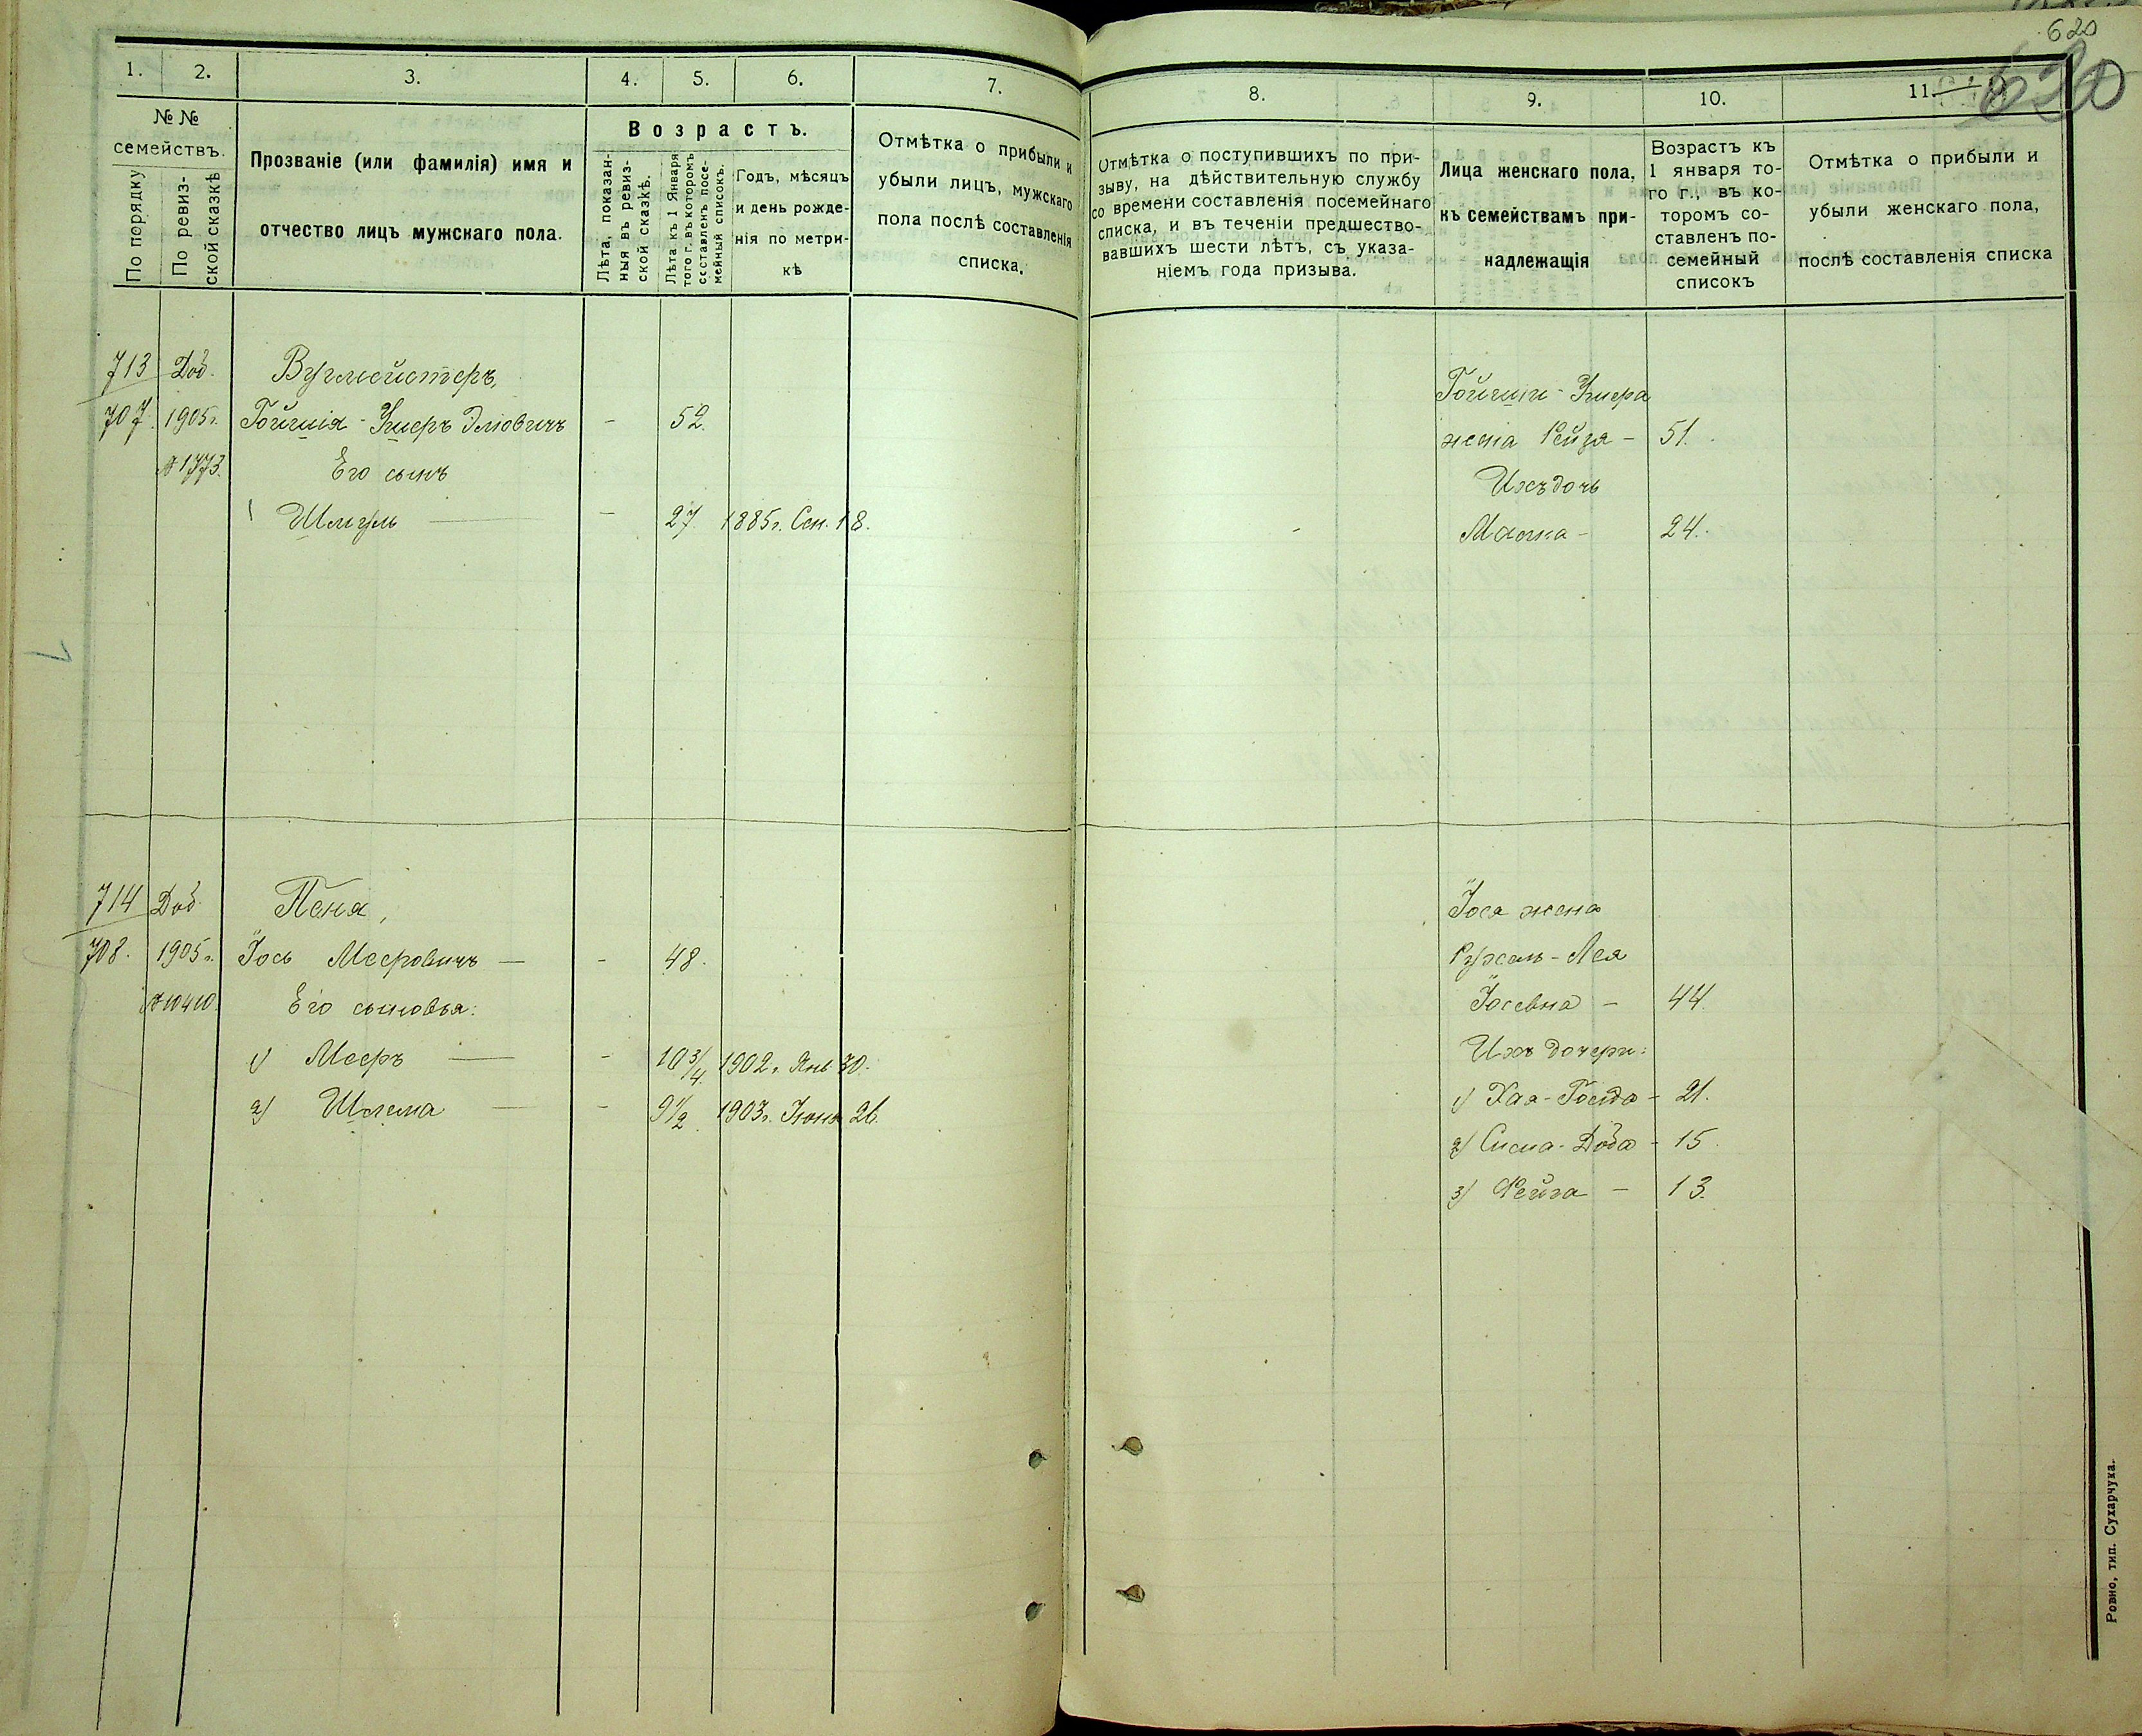 620
620
1. 2. 3. 4. 5. 6. 7.
№ №
семействъ.
По порядку
По ревиз-
ской сказкѣ
Прозваніе (или фамилія) имя и
отчество лицъ мужскаго пола.
Возрастъ.
Лѣта, показан-
ныя въ ревиз-
ской сказкѣ.
Лѣта къ 1 Января
того г. въ которомъ
составленъ посе-
мейный списокъ.
Годъ, мѣсяцъ
и день рожде-
нія по метри-
кѣ
Отмѣтка о прибыли и
убыли лицъ, мужскаго
пола послѣ составленія
списка.
713 Доб.
707. 1905г. Гойшія-Ушеръ Элiовичъ - 52.
№ 1773. Его сынъ
Шмуль - 27. 1885г. Сен. 18.
714 Доб. Пеня,
708. 1905г. Іось Мееровичъ - 48.
№ 10410. Его сыновья:
1) Мееръ - 10 3/4. 1902г. Янв 30.
2) Шлема - 9 1/2. 1903г. Іюня 26.
8. 9. 10. 11.
Отмѣтка о поступившихъ по при-
зыву, на дѣйствительную службу
со времени составленія посемейнаго
списка, и въ теченіи предшество-
вавшихъ шести лѣтъ, съ указа-
ніемъ года призыва.
Лица женскаго пола,
къ семействамъ при-
надлежащія
Возрастъ къ
1 января то-
го г., въ ко-
торомъ со-
ставленъ по-
семейный
списокъ
Отмѣтка о прибыли и
убыли женскаго пола,
послѣ составленія списка
Гойшіи-Ушера
жена Рейзя - 51.
Ихъ дочь
Малка - 24.
Іося жена
Рухель-Лея
Іосевна - 44.
Ихъ дочери:
1) Хая-Голда - 21.
2) Сисиа-Доба - 15.
3) Фейга - 13.
Ровно, тип. Сухарчука.